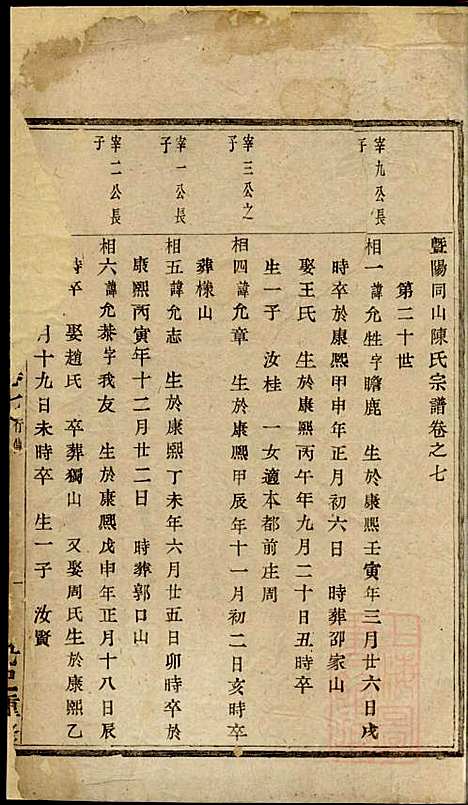 暨陽同山陳氏宗譜卷之七
第二十世
宰九公長子
相一諱允甡字瞻鹿 生於康熙壬寅年三月廿六日戌
時卒於康熙甲申年正月初六日 時葬邵家山
娶王氏 生於康熙丙午年九月二十日丑時卒
生一子 汝桂 一女適本都前庄周
宰三公之子
相四諱允章 生於康熙甲辰年十一月初二日亥時卒
葬樣山
宰一公長子
相五諱允志 生於康熙丁未年六月廿五日卯時卒於
康熙丙寅年十二月廿二日 時葬郭口山
宰二公長子
相六諱允恭字我友 生於康熙戊申年正月十八日辰
時卒 娶趙氏 卒葬獨山 又娶周氏生於康熙乙
月十九日未時卒 生一子 汝賢
行傳
一